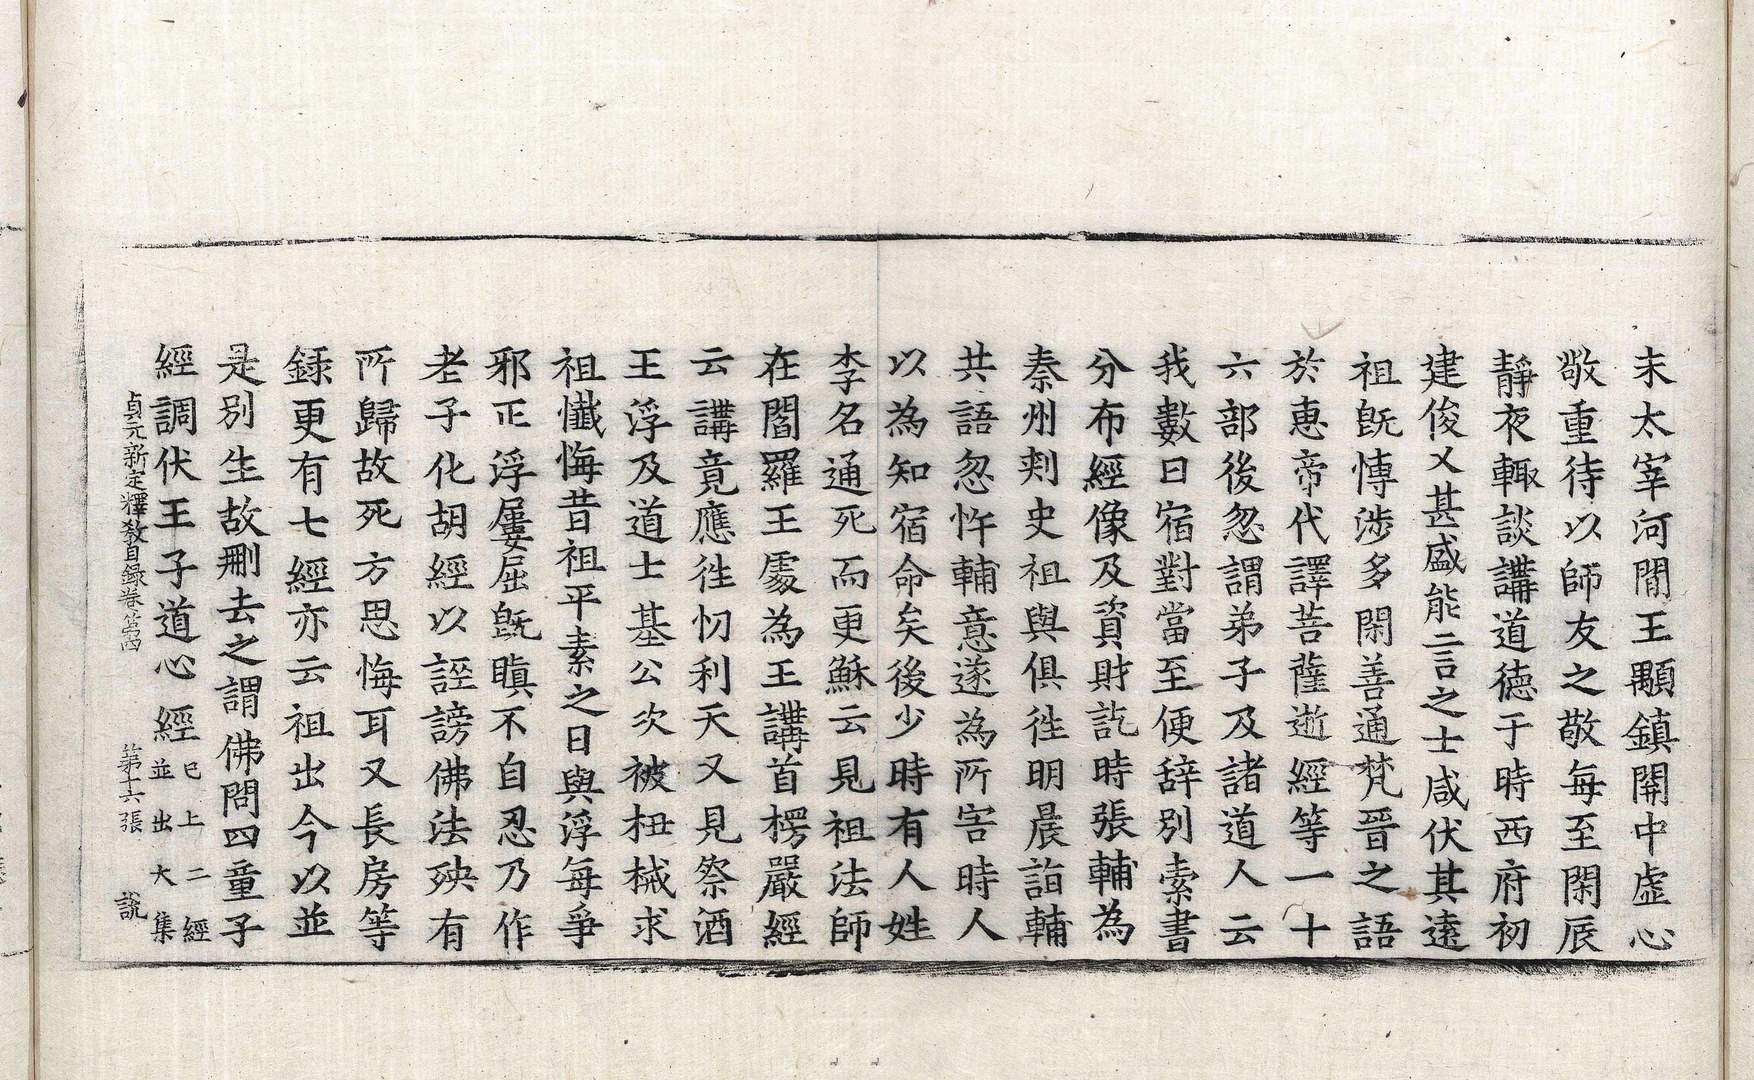 末太宰河間王顒鎮關中虛心
敬重待以師友之敬每至閑辰
靜夜輙談講道德于時西府初
建俊乂甚盛能言之士咸伏其遠
祖旣愽涉多閑善通梵晉之語
於惠帝代譯菩薩逝經等一十
六部後忽謂弟子及諸道人云
我數日宿對當至便辞別素書
分布經像及資財訖時張輔為
秦州刾史祖與俱徃明晨詣輔
共語忽忤輔意遂為所害時人
以為知宿命矣後少時有人姓
李名通死而更穌云見祖法師
在閻羅王處為王講首楞嚴經
云講竟應徃忉利天又見祭酒
王浮及道士基公次被杻械求
祖懺悔昔祖平素之日與浮每爭
邪正浮屢屈旣瞋不自忍乃作
老子化胡經以誣謗佛法殃有
所歸故死方思悔耳又長房等
録更有七經亦云祖出今以並
是別生故刪去之謂佛問四童子
經調伏王子道心經已上二經並出大集
貞元新定釋教目錄卷第四 第十六張 說